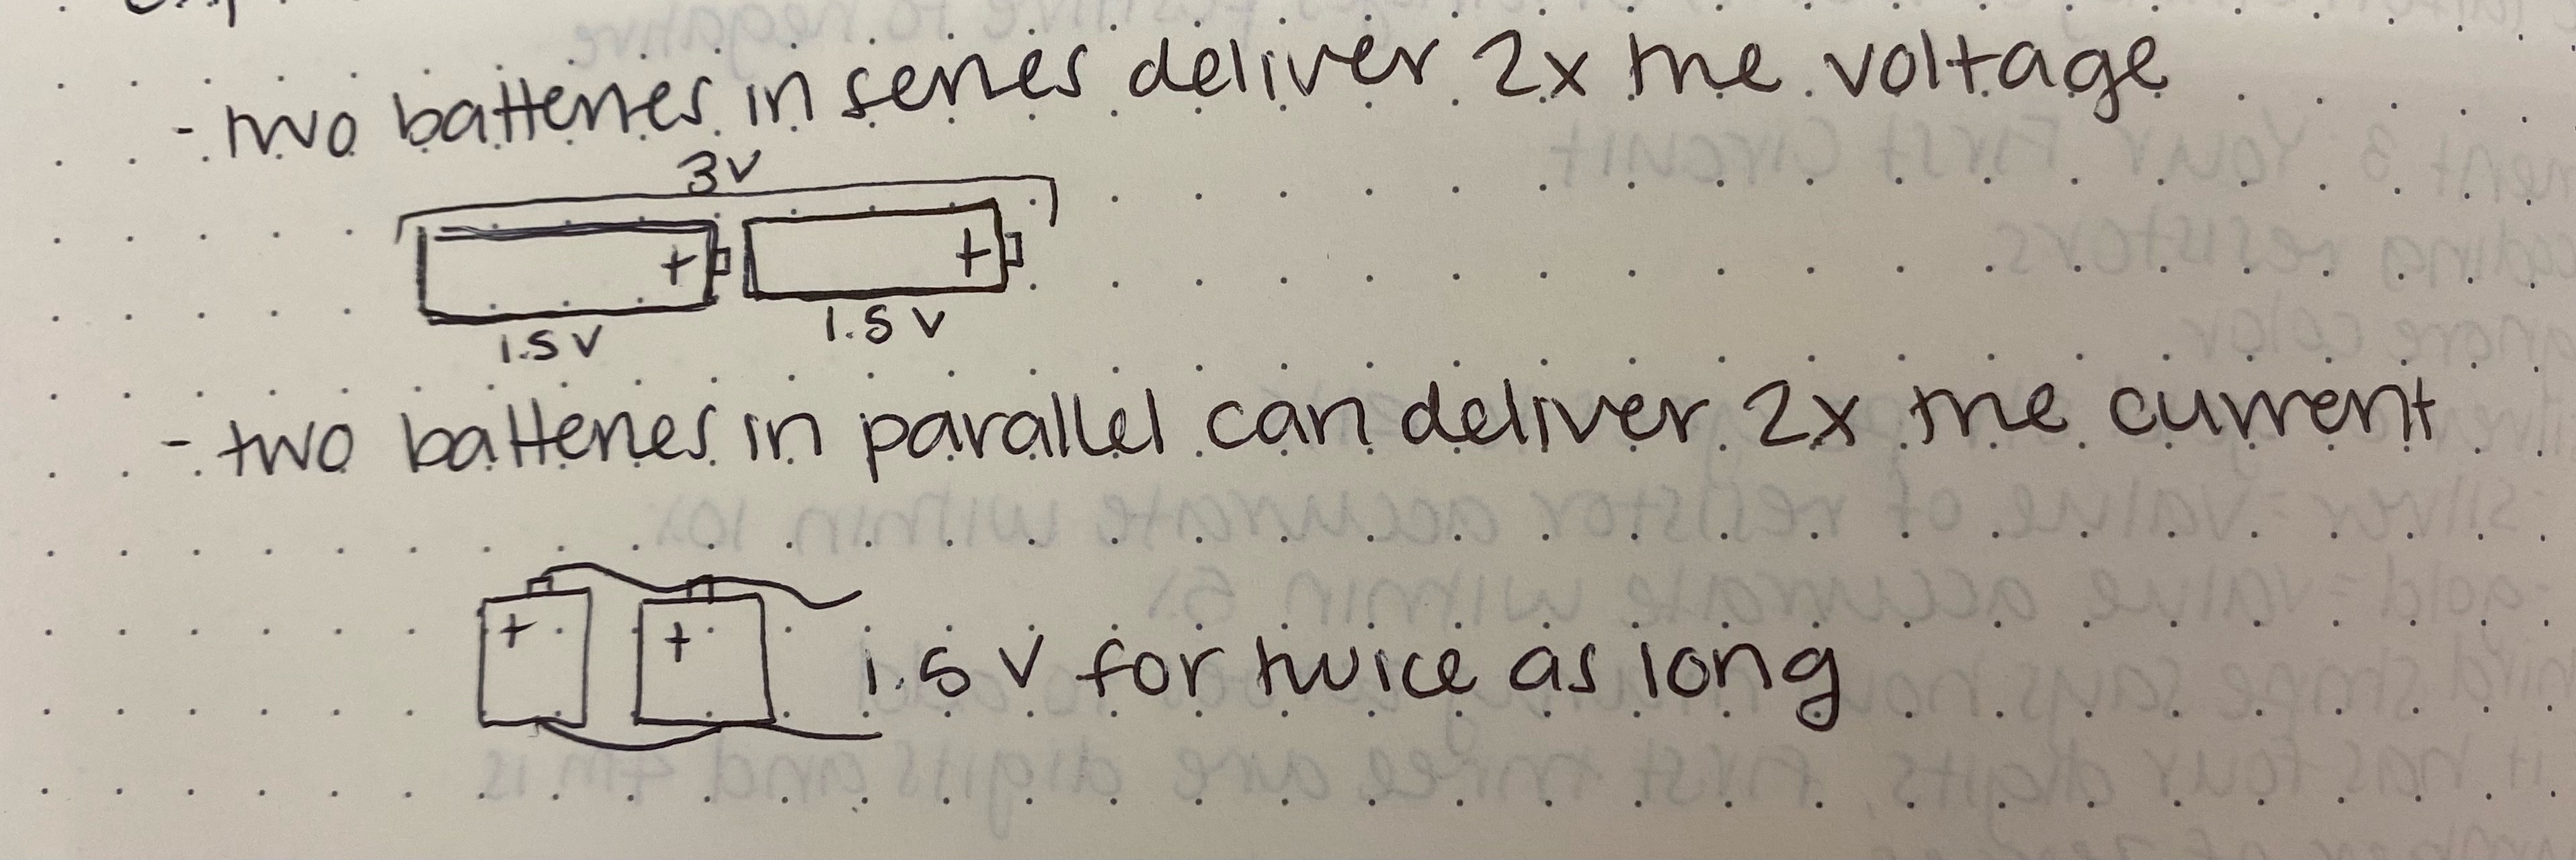 - two batteries in series deliver 2x the voltage
3V
+ +
1.5 V 1.5 V
- two batteries in parallel can deliver 2x the current
+ +
1.5 V for twice as long